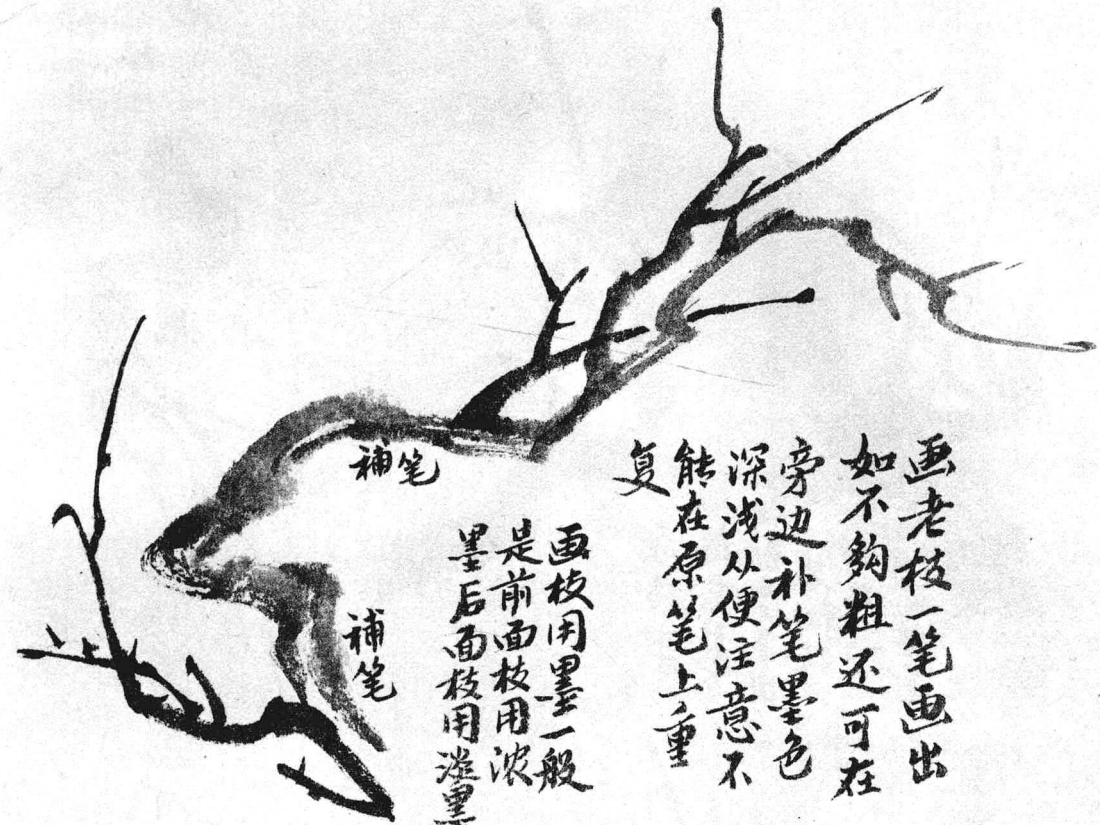 画老枝一笔画出
如不夠粗还可在
旁边补笔墨色
深浅从便注意不
能在原笔上重
复
画枝用墨一般
是前面枝用浓
墨后面枝用淡墨
補笔
補笔